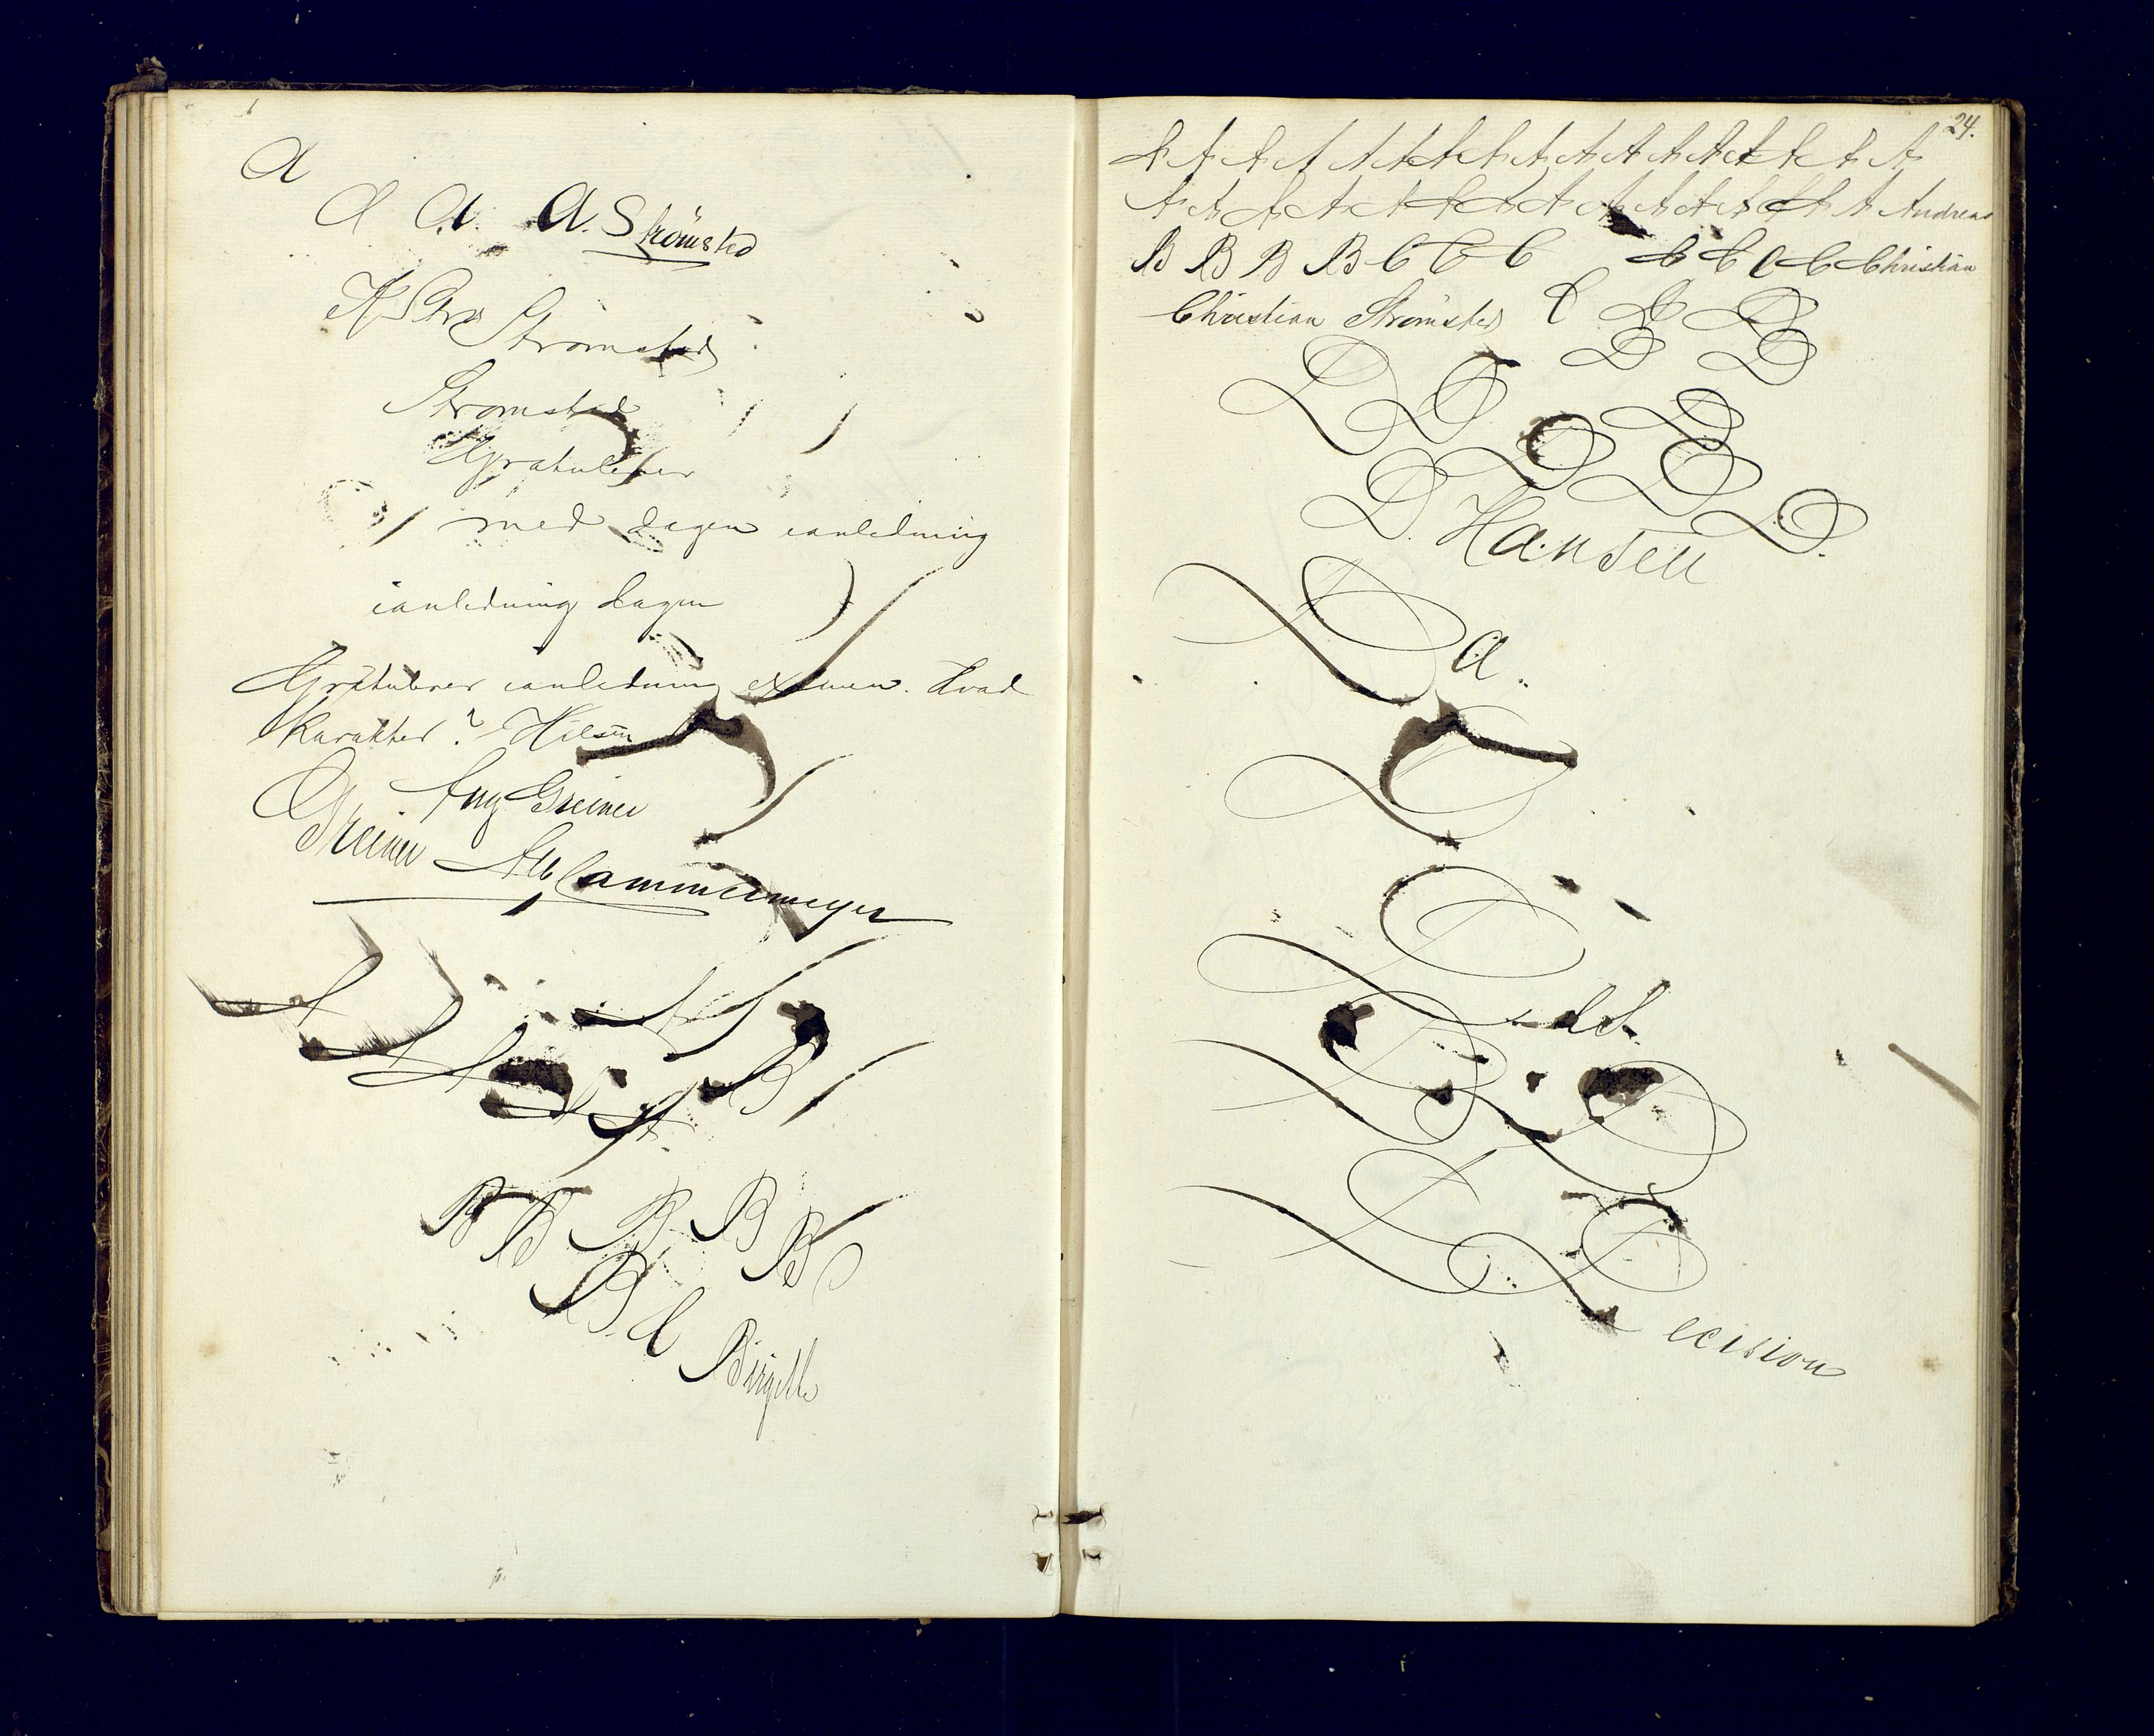 A
A A A. Strömsted
K Str Strömsted
Strömsted
Gratulerer
med dagen ianledning
ianledning dagen
Gratulerer ianledning examen. Hvad
karakter? Hilsen
Aug Greiner
Greiner Alb Cammermeyer
B
B B B B B
B d
Birgitte
24.
A A A A A A A A A A A A A A A A A A A
A A A A A A A A A A A A A A A Andreas
B B B B C C C C C C C Christian
Christian Strömsted C D D
D D
D D D
D D
D. Hansen D.
Da
D
Ddd
D D
D Decision